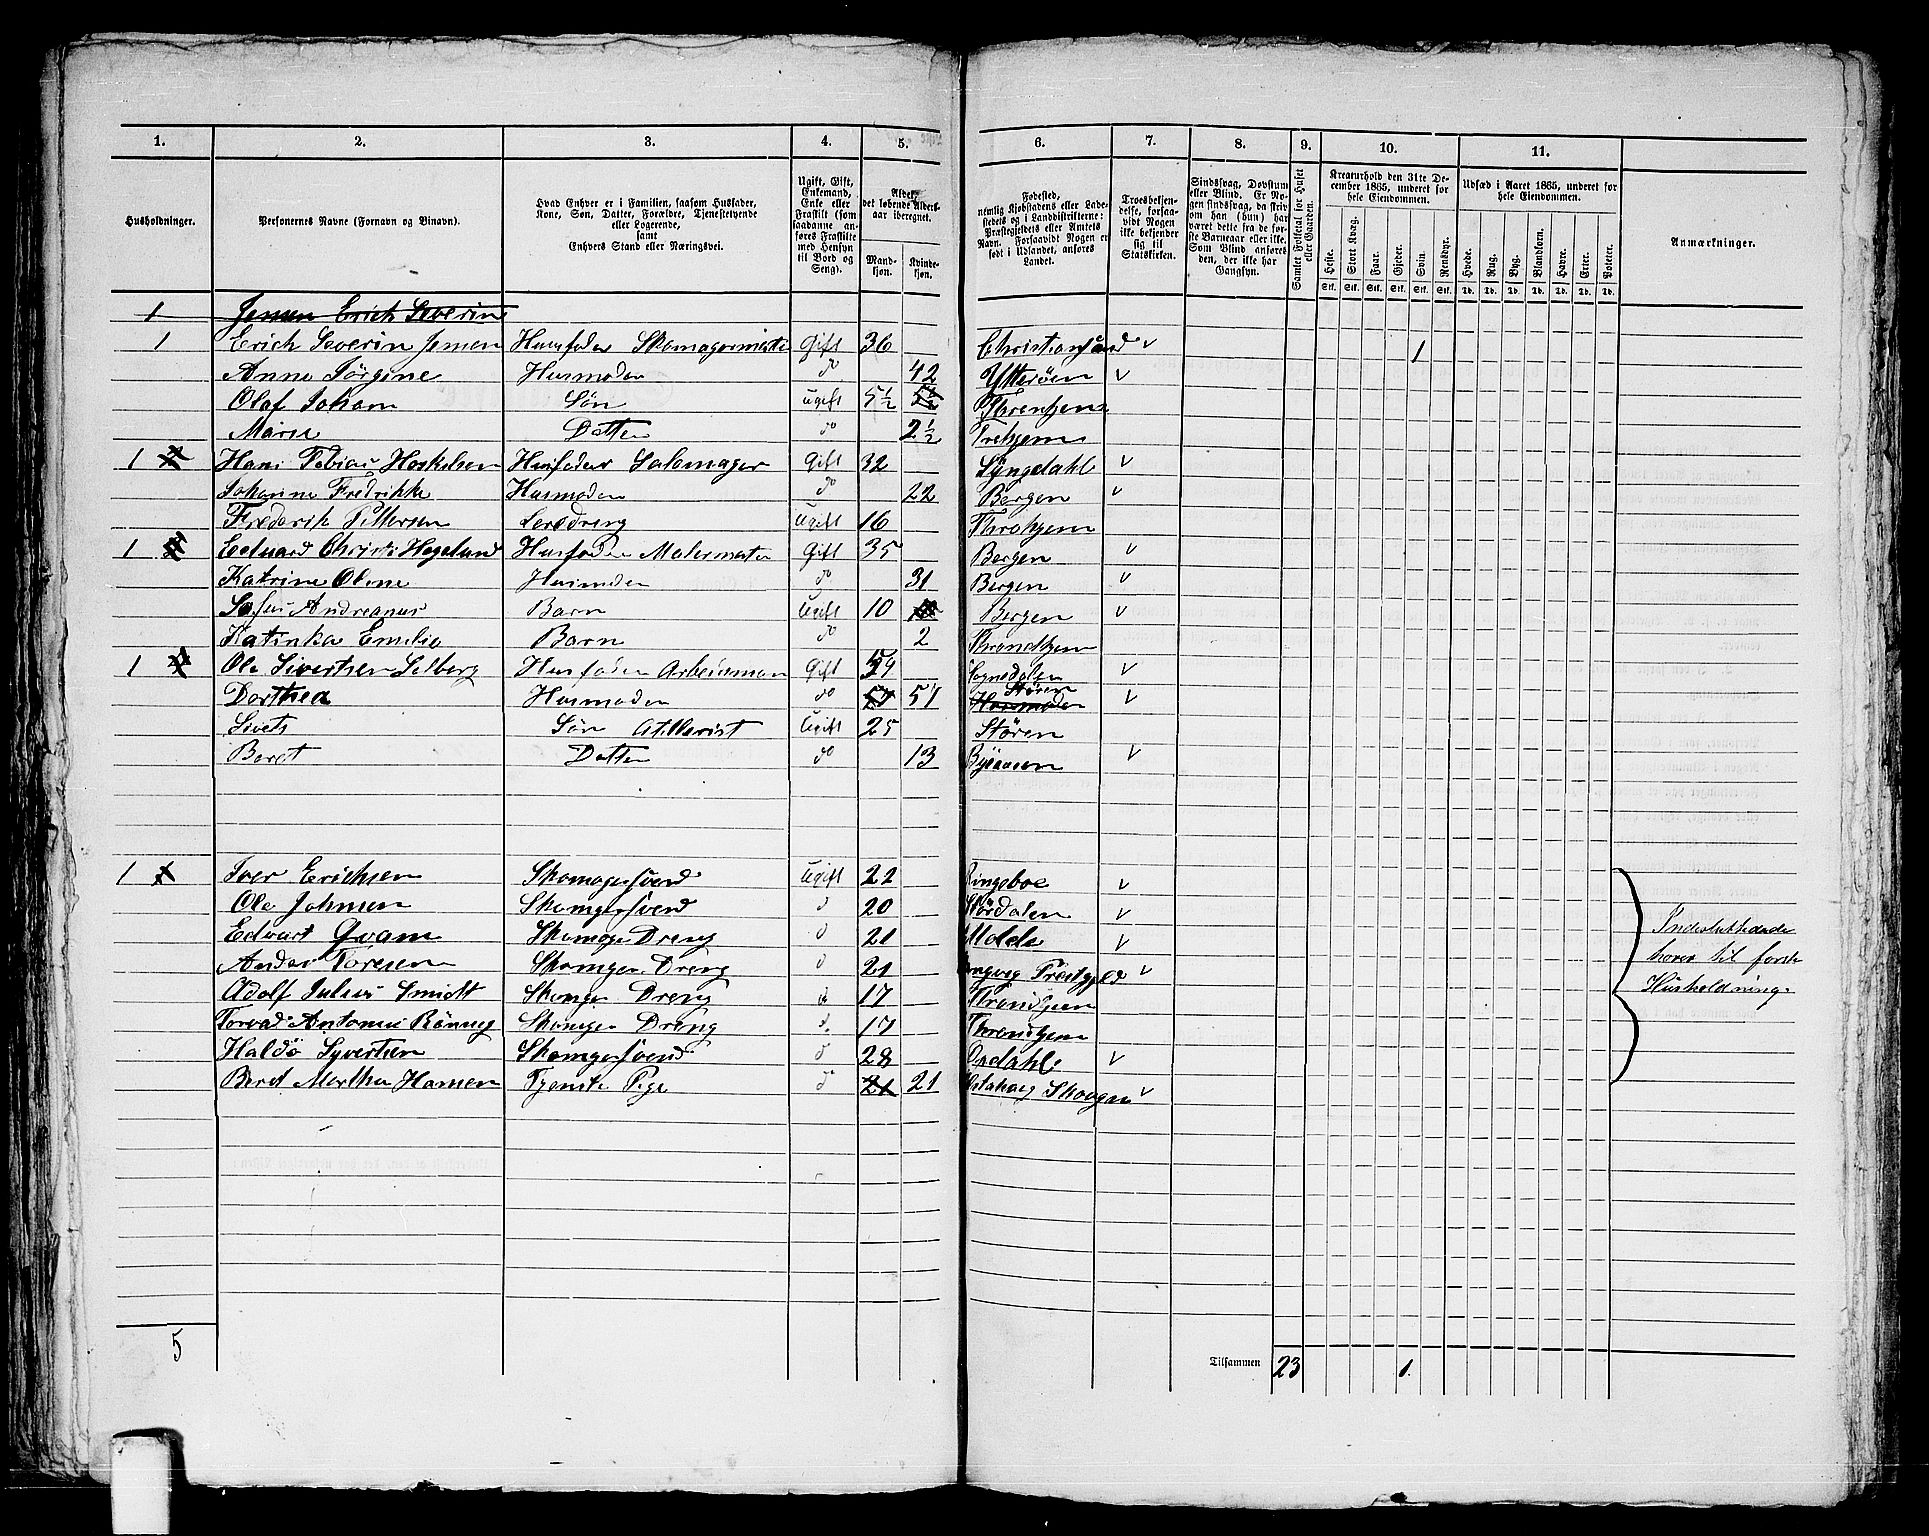 1. 2. 3. 4. 5. 6. 7. 8. 9. 10. 11.
Husholdninger. Personernes Navne (Fornavn og Binavn). Hvad Enhver er i Familien, saasom Husfader, Kone, Søn, Datter, Forældre, Tjenestetyende eller Logerende, samt Enhvers Stand eller Næringsvei. Ugift, Gift, Enkemand, Enke eller Fraskilt (som saadanne anføres Fraskilte med Hensyn til Bord og Seng). Alder, det løbende Alders-aar iberegnet. Mand-kjøn. Kvinde-kjøn. Fødested, nemlig Kjøbstadens eller Ladestedets og i Landdistrikterne: Præstegjeldets eller Amtets Navn. Forsaavidt Nogen er født i Udlandet, anføres Landet. Troesbekjendelse, forsaavidt Nogen ikke bekjender sig til Statskirken. Sindssvag, Døvstum eller Blind. Er Nogen sindssvag, da skriv om han (hun) har været dette fra de første Barneaar eller ikke. Som Blind anføres den, der ikke har Gangsyn. Samlet Folketal for Huset eller Gaarden. Kreaturhold den 31te December 1865, underet for hele Eiendommen. Heste. Stort Kvæg. Faar. Gjeder. Svin. Rensdyr. Udsæd i Aaret 1865, underet for hele Eiendommen. Hvede. Rug. Byg. Blandkorn. Havre. Erter. Poteter. Anmærkninger.
Stk. Stk. Stk. Stk. Stk. Stk. Td. Td. Td. Td. Td. Td. Td.
1 Jensen Erich Severin
1 Erich Severin Jensen Husfader Skomagermester Gift 36 Christiansand v 1
Anne Jörgine Husmoder do 42 Ytteröen v
Olaf Johan Sön ugift 5½ Threntjem
Marie Datter do 2½ Trehjem
1 Hans Tobias Hoskelsen Husfader Salemager Gift 32 Lyngdahl v
Johanne Fredrikke Husmoder do 22 Bergen v
Frederik Pettersen Leredreng Ugift 16 Throhjem
1 Eduard Christi Hegelund Husfader Malermester Gift 35 Bergen v
Katrine Oline Husmoder do 31 Bergen v
Sofus Andreanus Barn Ugift 10 Bergen v
Katinka Emelia Barn do 2 Throndhjem
1 Ole Sivertsen Solberg Husfader Arbeidsman Gift 59 Sognedalen v
Dorthea Husmoder do 51 Stören Husmoder v
Sivets Sön Atillerist Ugift 25 Stören
Beret Datter do 13 Byeaasen v
1 Iver Erichsen Skomagersvend Ugift 22 Ringeboe v
Ole Johnsen Skomgersvend do 20 Stördalen v
Edvart Qvam Skomage Dreng do 21 v
Ander Toresen Skomger Dreng do 21 v
Adolf Julius Smidt Skomger Dreng do 17 Trondhjem
Torvad Antonus Rönning Skomger Dreng do. 17 Throndhjem
Haldo Syvertsen Skomgersvend do 28 v
Beret Martha Hansen Tjenste Pige do 21 21 Skougn v
Indesluttedade
hører til første
Husholdning.
5 Tilsammen 23 1.